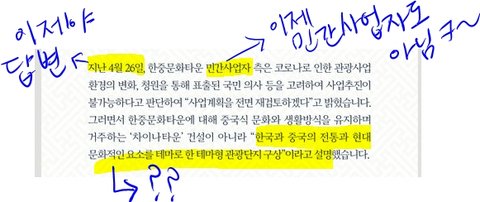 이제야
답변
이제
민간사업자도
아님 ㅋ~
지난 4월 26일, 한중문화타운 민간사업자 측은 코로나로 인한 관광사업
환경의 변화, 청원을 통해 표출된 국민 의사 등을 고려하여 사업추진이
불가능하다고 판단하여 “사업계획을 전면 재검토하겠다”고 밝혔습니다.
그러면서 한중문화타운에 대해 중국식 문화와 생활방식을 유지하며
거주하는 ‘차이나타운’ 건설이 아니라 “한국과 중국의 전통과 현대
문화적인 요소를 테마로 한 테마형 관광단지 구상”이라고 설명했습니다.
??